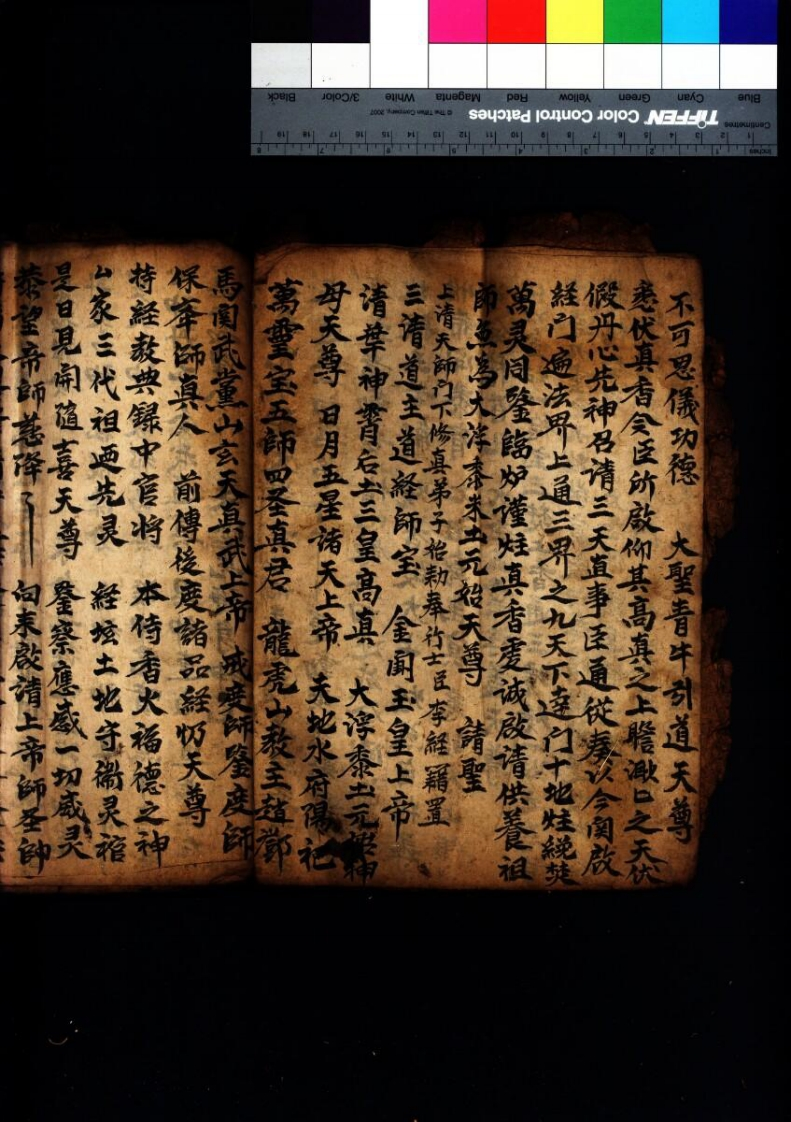 不可思儀功德　大聖青牛引道天尊
悉伏真香今臣所啟仰其高真之上瞻溵㠯之天伏
假丹心先神召請三天直事臣通從奏以今関啟
経门遍法界上通三界之九天下達门十地炷繞焚
萬灵同鑒臨炉谨炷真香虔诚啟请供養祖
師為大浮黍米土元始天尊　請聖
上清天師门下修真弟子始勑奉行士臣李経籮置
三清道主道経師宝　金闕玉皇上帝
清華神霄后土三皇高真　大浮黍土元始神
母天尊　日月五星諸天上帝　天地水府陽祀
萬靈宝五師四圣真君　龍虎山教主趙鄧
馬関武黨山玄天真武上帝　戒度師鑒度師
保奔師真人　前傳後度諸品経忉天尊
持経教典録中官将　本侍香火福德之神
厶家三代祖迊先灵　経坛土地守衛灵祒
是日見闻隨喜天尊　鑒察應感一切威灵
恭望帝師慈降　向来啟請上帝師圣帥
TIFFEN Color Control Patches
© The Tiffen Company, 2007
Blue Cyan Green Yellow Red Magenta White 3/Color Black
Centimetres
Inches